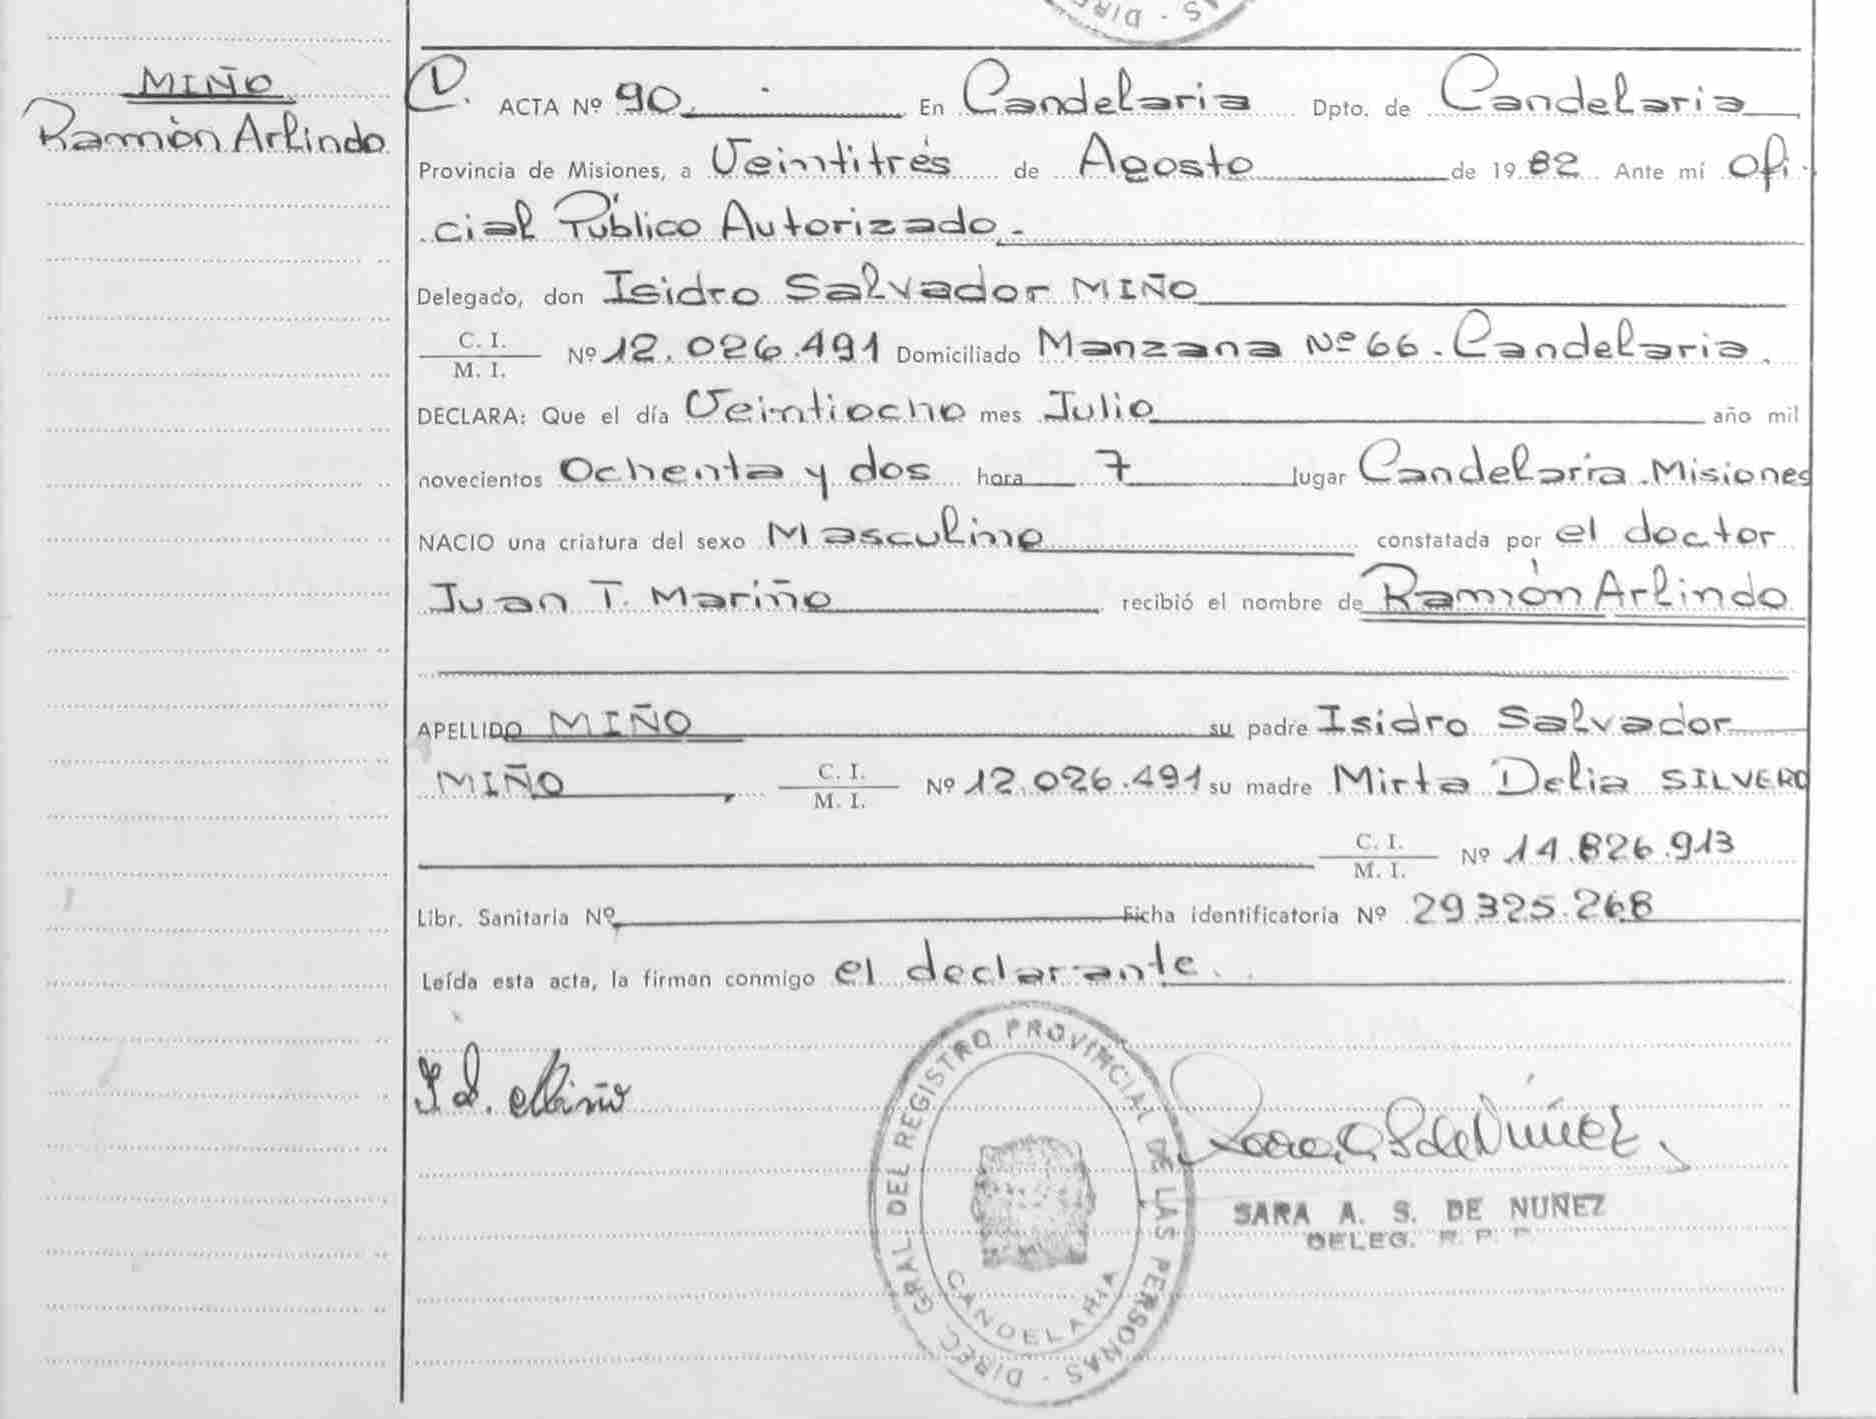 DIREC
MIÑO
Ramón Arlindo
ACTA Nº 90. En Candelaria Dpto. de Candelaria
Provincia de Misiones, a Veintitrés de Agosto de 19 82 Ante mí Ofi-
cial Público Autorizado.-
Delegado, don Isidro Salvador MIÑO
C. I.
M. I.
Nº 12.026.491 Domiciliado Manzana Nº 66. Candelaria.
DECLARA: Que el día Veintiocho mes Julio año mil
novecientos Ochenta y dos hora 7 lugar Candelaria. Misiones
NACIO una criatura del sexo Masculino constatada por el doctor
Juan T. Mariño recibió el nombre de Ramón Arlindo
APELLIDO MIÑO su padre Isidro Salvador
MIÑO, C. I.
M. I.
Nº 12.026.491 su madre Mirta Delia SILVERO
C. I.
M. I.
Nº 14.826.913
Libr. Sanitaria Nº Ficha identificatoria Nº 29325.268
Leída esta acta, la firman conmigo el declarante.
I S. Miño
DIREC. GRAL. DEL REGISTRO PROVINCIAL DE LAS PERSONAS
CANDELARIA
Sara A. S de Núñez
SARA A. S. DE NUÑEZ
DELEG. R. P. P.